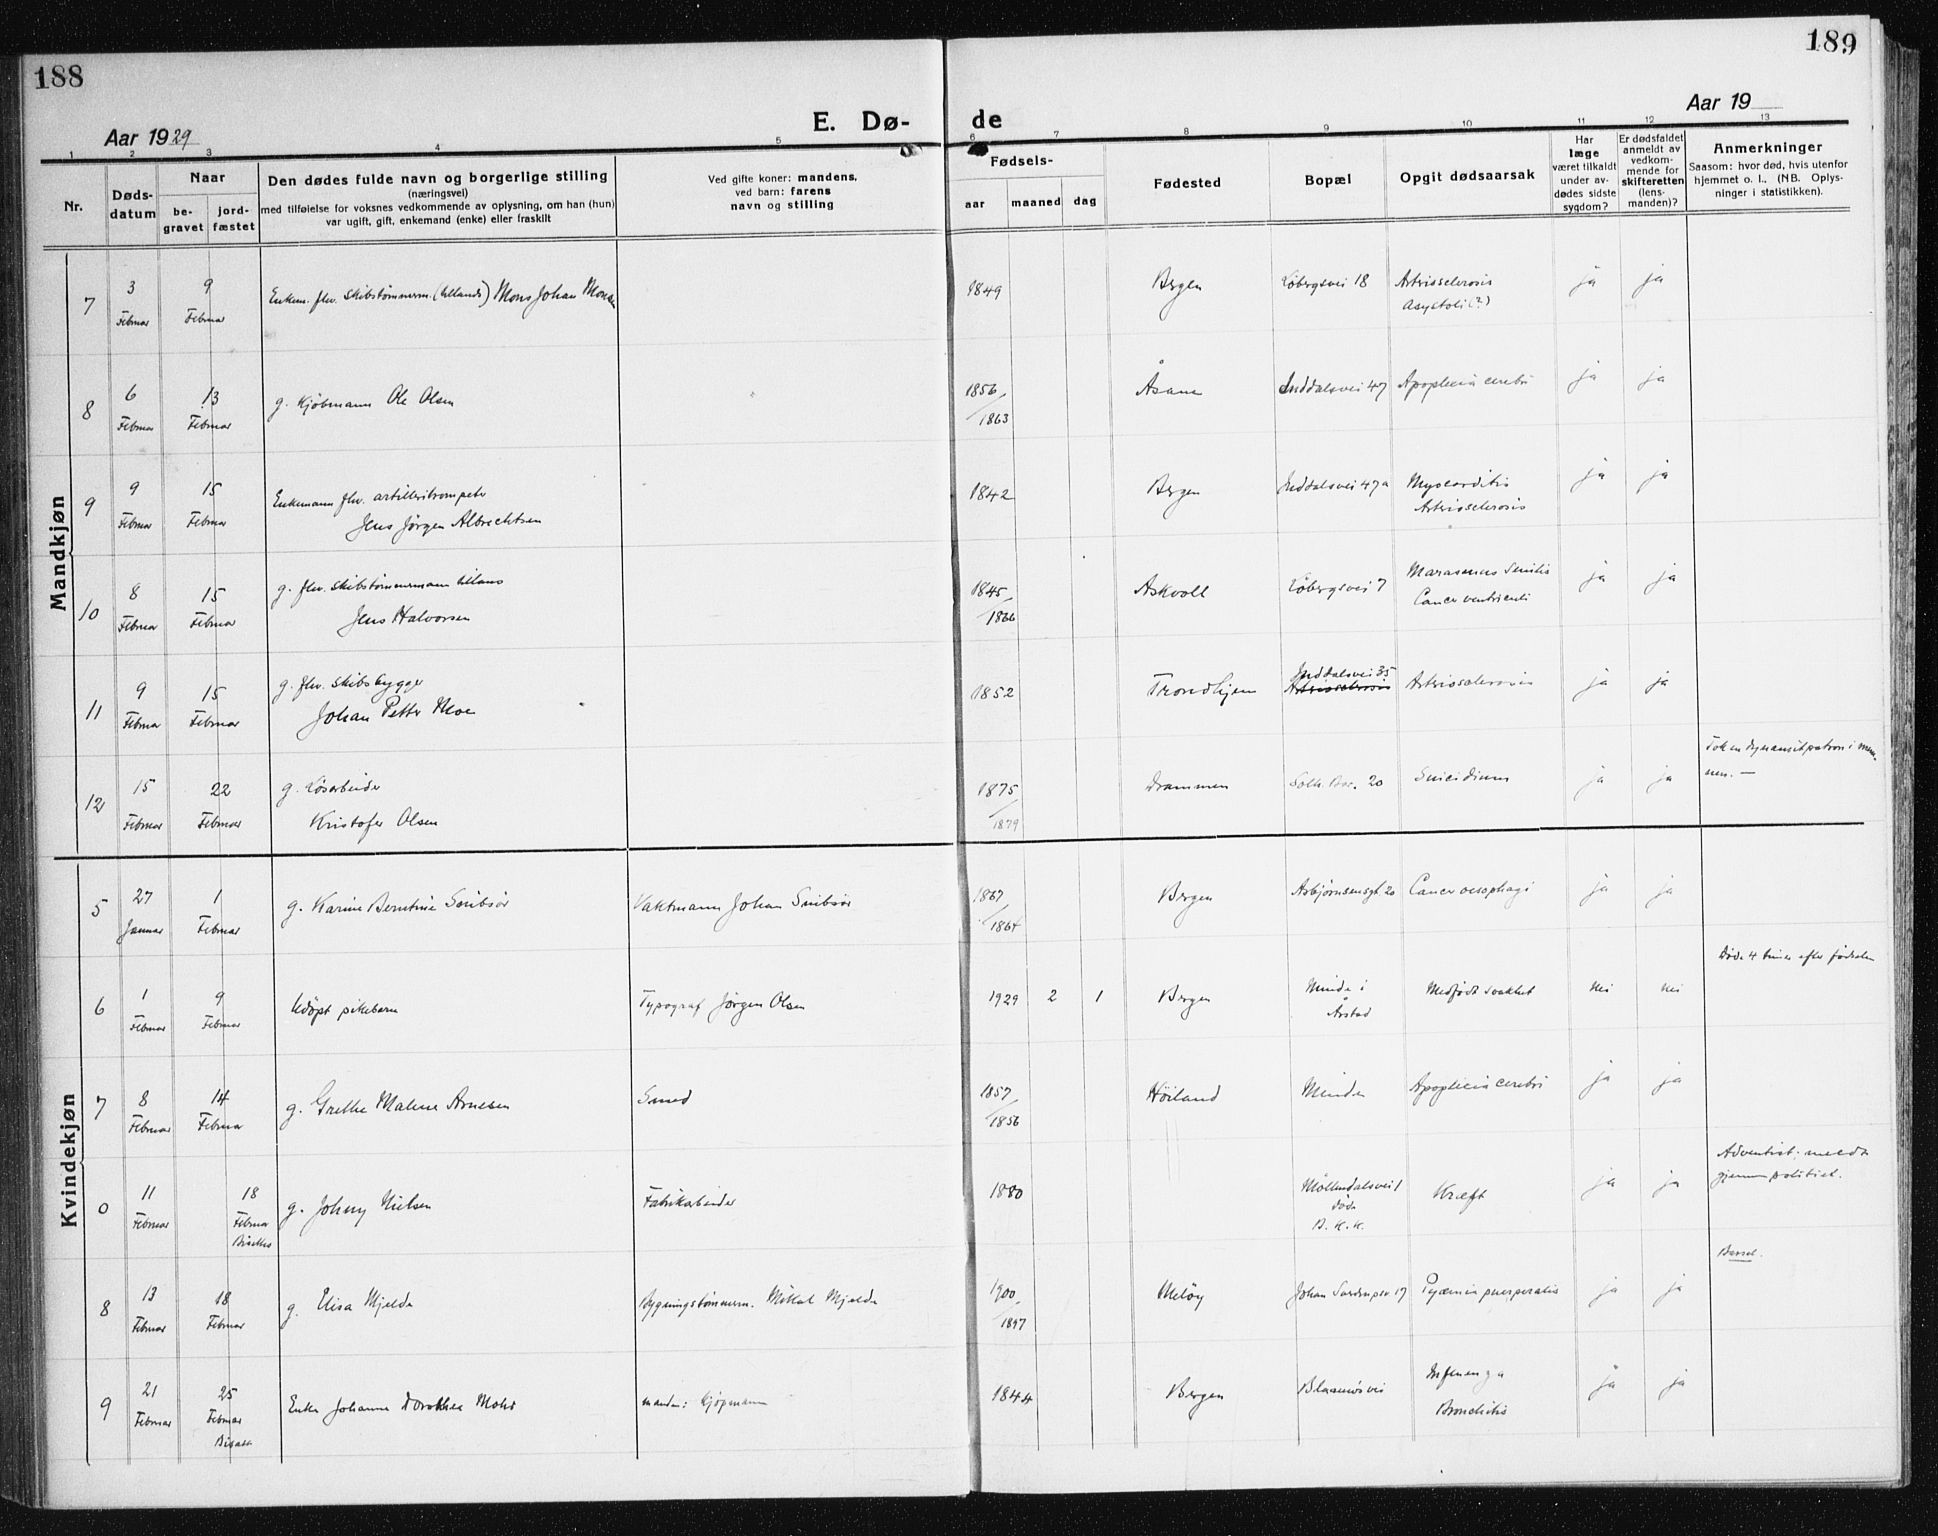 188
189
Aar 1929
E. Dø-
de
Aar 19
1 2 3 4 5 6 7 8 9 10 11 12 13
Nr.
Døds-
datum
Naar
be-
gravet
jord-
fæstet
Den dødes fulde navn og borgerlige stilling
(næringsvei)
med tilføielse for voksnes vedkommende av oplysning, om han (hun)
var ugift, gift, enkemand (enke) eller fraskilt
Ved gifte koner: mandens,
ved barn: farens
navn og stilling
Fødsels-
aar maaned dag
Fødested
Bopæl
Opgit dødsaarsak
Har
læge
været tilkaldt
under av-
dødes sidste
sygdom?
Er dødsfaldet
anmeldt av
vedkom-
mende for
skifteretten
(lens-
manden)?
Anmerkninger
Saasom: hvor død, hvis utenfor
hjemmet o. l. (NB. Oplys-
ninger i statistikken).
Mandkjøn
7 3 Februar 9 Februar Enkem. fhv. skibstømmerm. Mons Johan Monsen 1849 Bergen Løbergsvei 18 Arteriosclerosis ja ja
Asystoli (?)
8 6 Februar 13 Februar g. Kjøbmann Ole Olsen 1856 / 1863 Åsane Inddalsvei 47 Apoplecia cerebri ja ja
9 9 Februar 15 Februar Enkemann fhv. artilleritrompeter 1842 Bergen Inddalsvei 47a Myocarditis ja ja
Jens Jørgen Albrechtsen Arteriosclerosis
10 8 Februar 15 Februar g. fhv. skibstømmermann 1845 / 1866 Askvoll Løbergsvei 7 Marasmus senilis ja ja
Jens Halvorsen Cancer ventriculi
11 9 Februar 15 Februar g. fhv. skibsbygger 1852 Trondhjem Inddalsvei 35 Arteriosclerosis ja ja
Johan Petter Moe Arteriosclerosis
12 15 Februar 22 Februar g. Løsarbeider 1875 / 1879 Drammen Solh. 20 Suicidium ja ja Tok en dynamitpatron i mun-
Kristofer Olsen nen. —
Kvindekjøn
5 27 Januar 1 Februar g. Karine Berntine Vaktmann Johan 1867 / 1864 Bergen Asbjørnsensgt. 20 Cancer oesophagi ja ja
6 1 Februar 9 Februar Udøpt pikebarn Typograf Jørgen Olsen 1929 2 1 Bergen Minde i Årstad Medfødt svakhet nei nei Døde 4 timer efter fødselen
7 8 Februar 14 Februar g. Grethe Malene Arnesen Smed 1857 / 1856 Høiland Minde Apoplecia cerebri ja ja
0 11 Februar 18 Februar g. Johny Nielsen Fabrikarbeider 1880 Møllendalsvei 1 Kræft ja ja Adventist; meldt
død B. K. K. gjennem politiet.
8 13 Februar 18 Februar g. Elisa Mjelde Bygningstømmerm. Mikal Mjelde 1900 / 1897 Meløy Johan 17 Pyæmia puerperalis ja ja Barsel.
9 21 Februar 25 Februar Enke Johanne Dorothea mann: Kjøpmann 1844 Bergen Influenza ja ja
Bronchitis